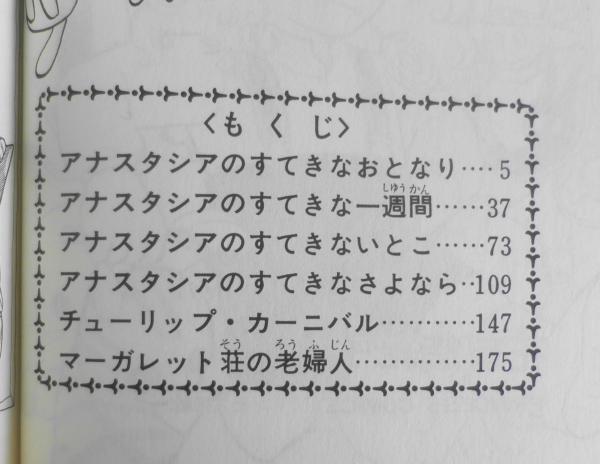 〈もくじ〉
アナスタシアのすてきなおとなり‥‥5
アナスタシアのすてきな一週間……37
アナスタシアのすてきないとこ……73
アナスタシアのすてきなさよなら‥109
チューリップ・カーニバル…………147
マーガレット荘の老婦人……………175